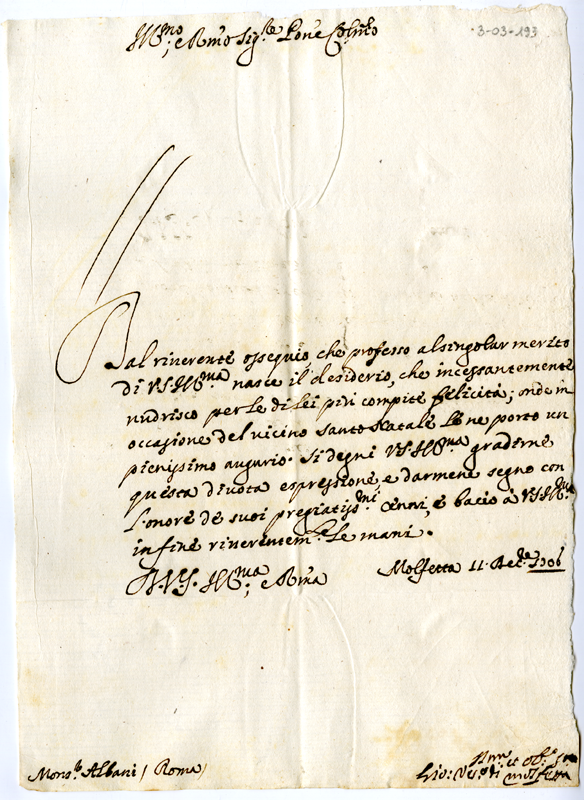 Ill.mo, e R.mo Sig.re P.rone Col.mo
3-03-193
Dal riverente ossequio che professo al singolar merito
di V.S. Ill.ma nasce il desiderio, che incessantemente
nudrisco per le di lei più compite felicità; onde in
occasione del vicino santo Natale Le ne porto un
pienissimo augurio. Si degni V.S. Ill.ma gradirne
questa divota espressione, e darmene segno con
l'onore de suoi pregiatiss.mi cenni, e bacio à V.S. Ill.ma
in fine riverentem.te le mani.
D. V.S. Ill.ma, e R.ma Molfetta 11 Xbre 1706
Mons.r Albani / Roma /
et Obl.
Gio: Vesc.o di Molfetta